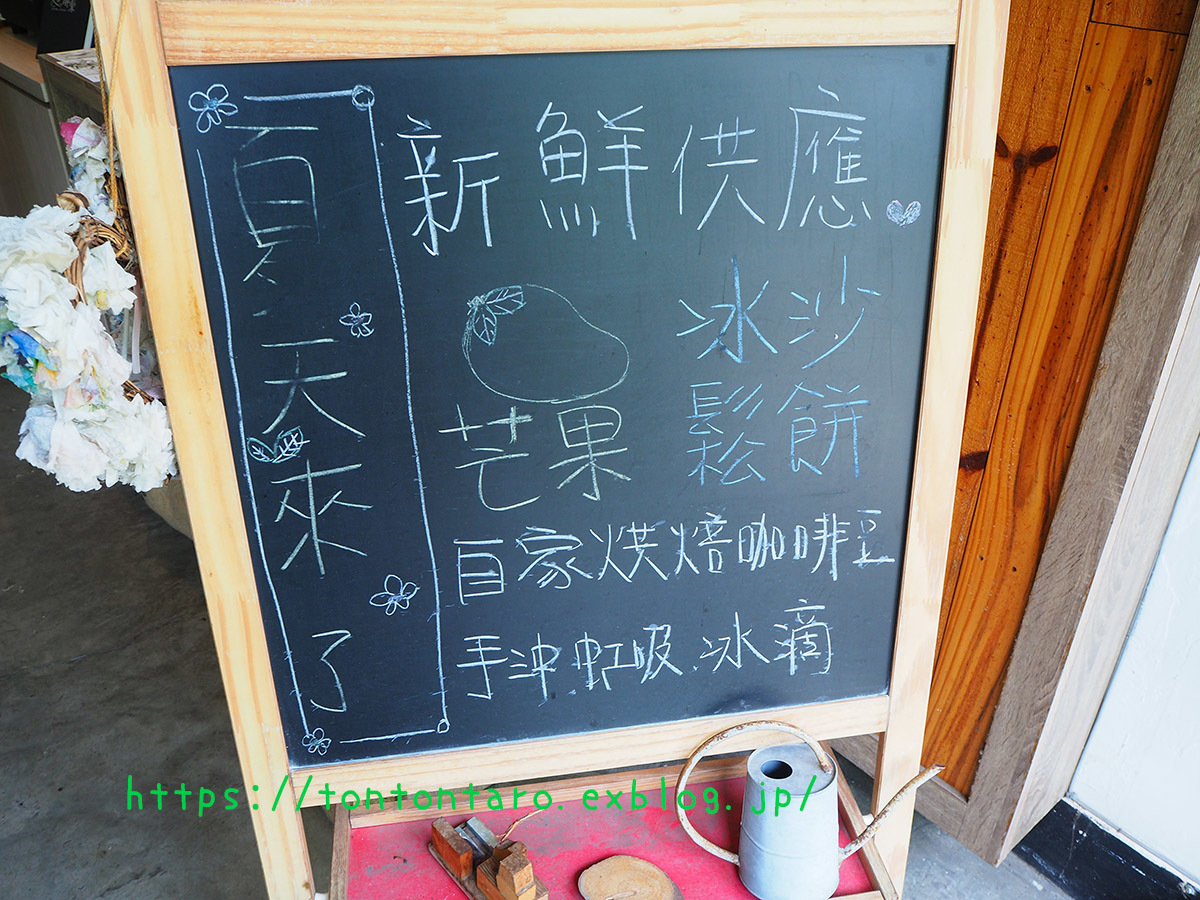 夏天來了
新鮮供應
冰沙
鬆餅
芒果
自家烘焙咖啡豆
手沖虹吸.冰滴
https://tontontaro.exblog.jp/